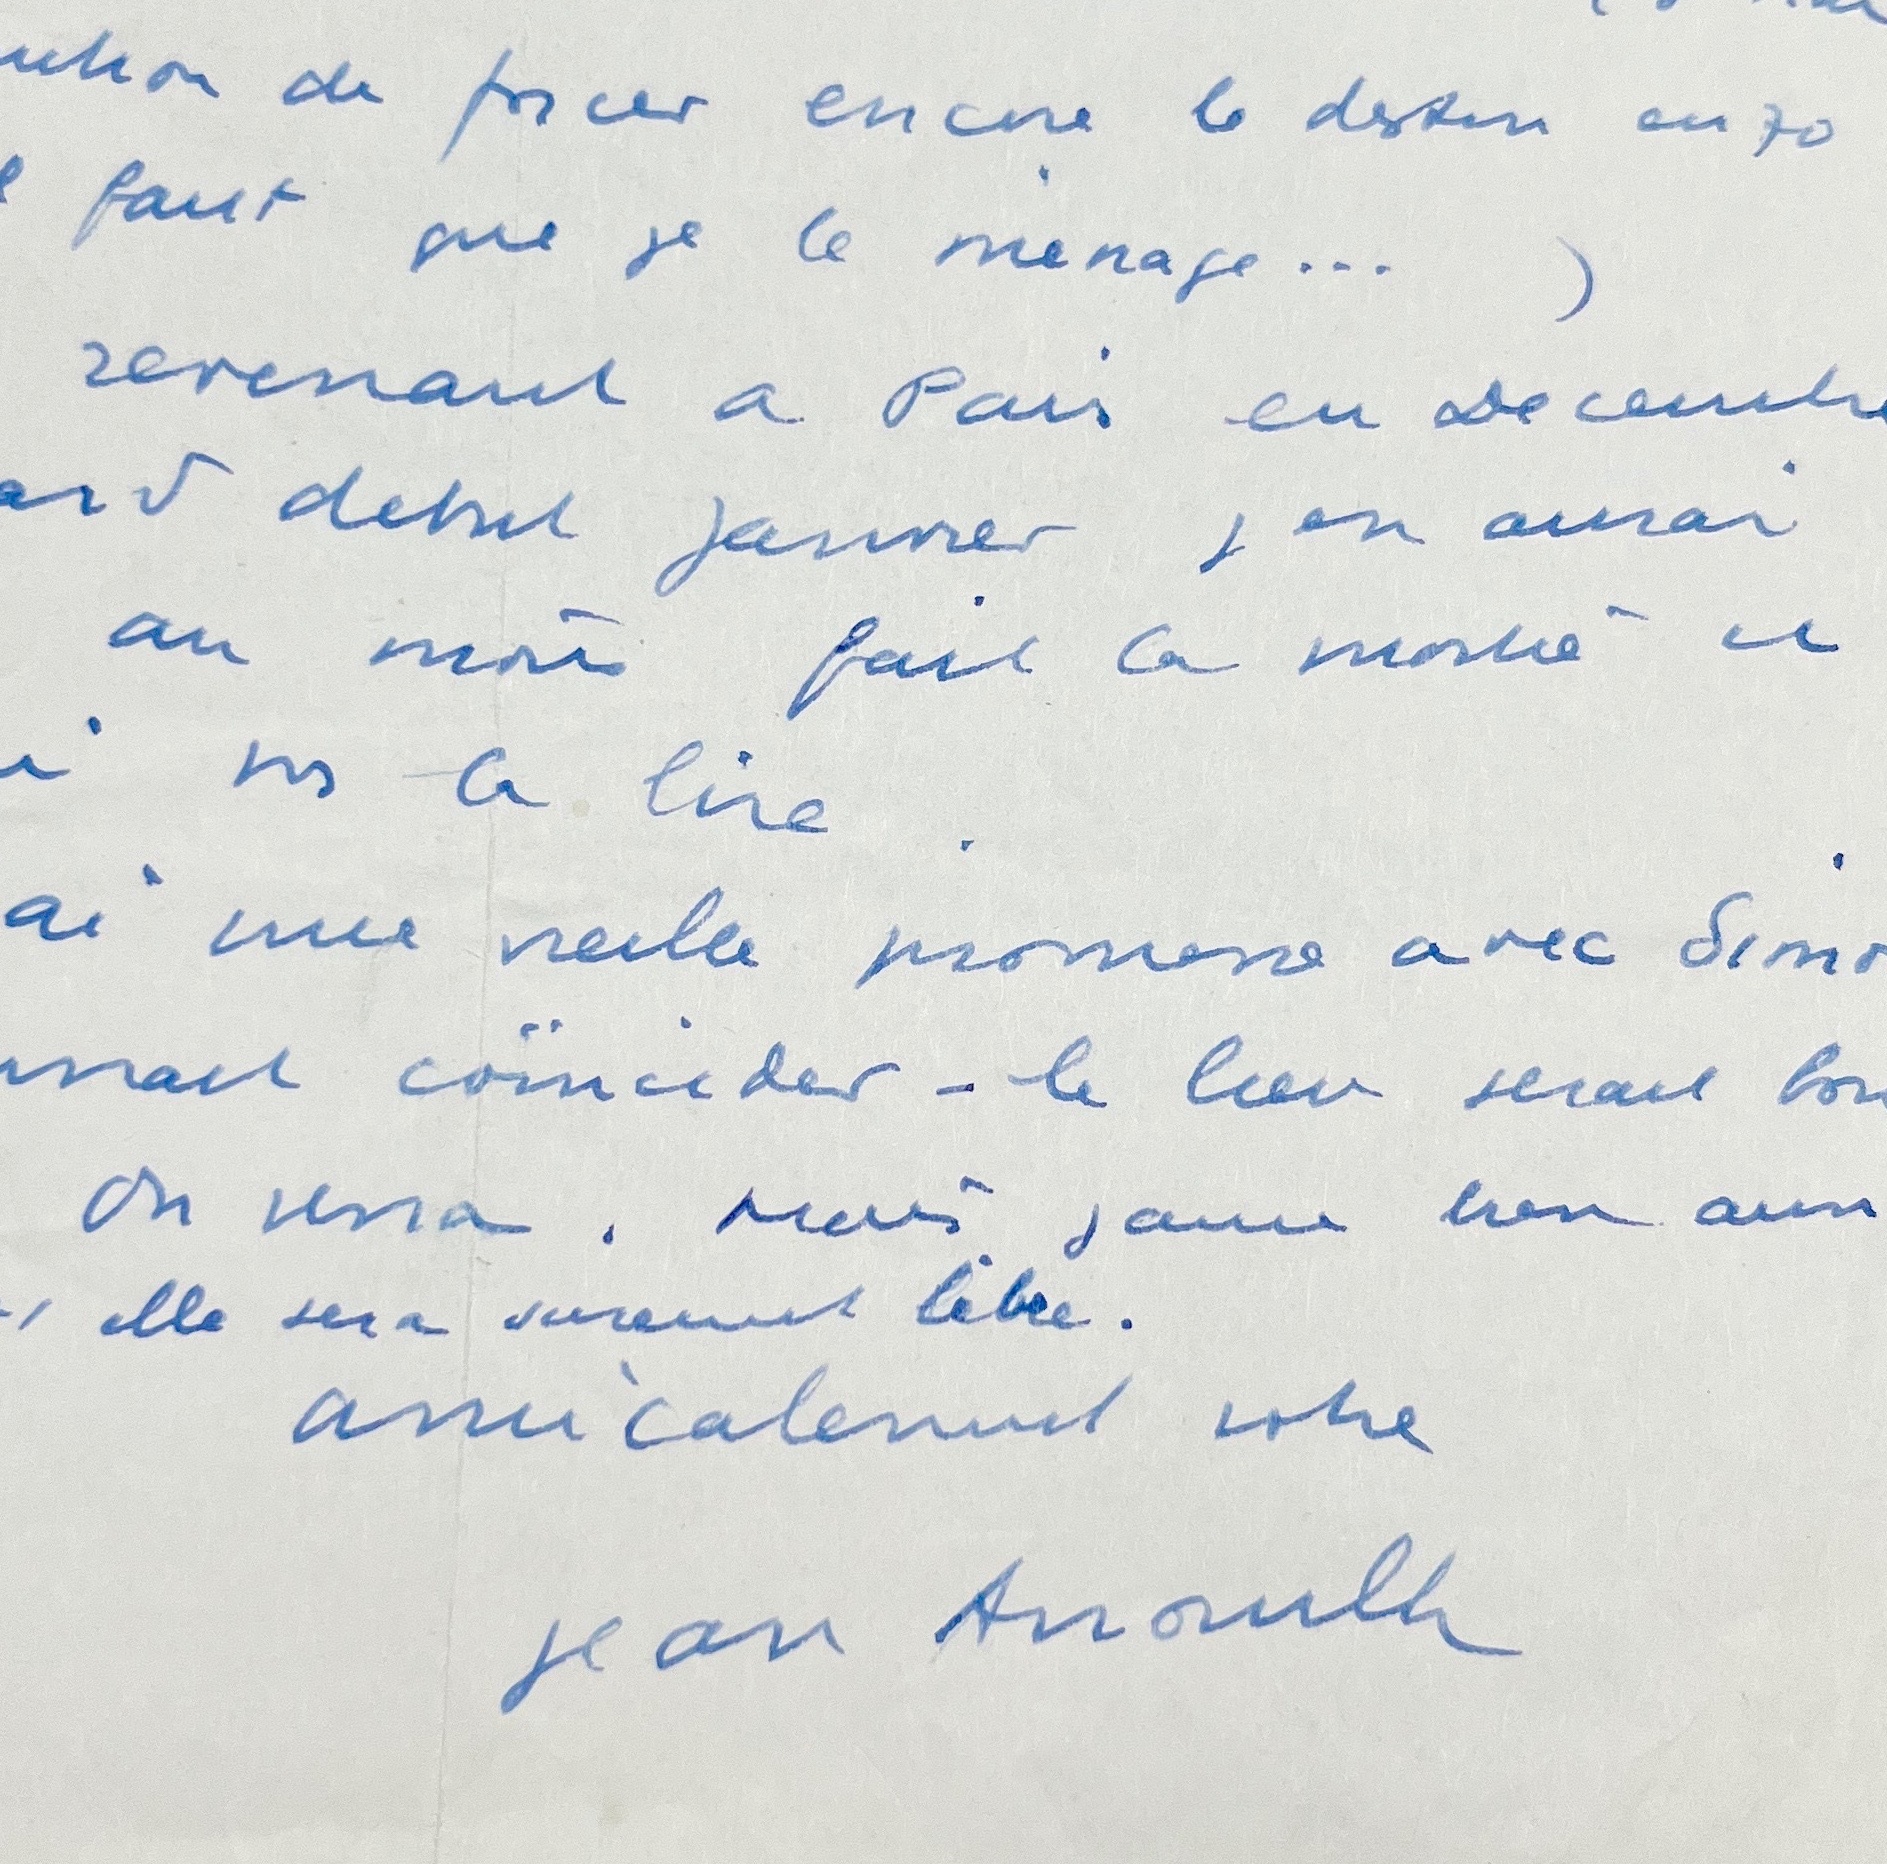 de forcer encore le destin en 70
faut que je le ménage... )
revenant a Paris en Decembre
debut janvier j en aurai
au moins fait la moitié et
la lire .
ai une vieille promesse avec
coïncider - le lieu serait bon
On verra . Mais j aime bien
elle sera surement libre .
amicalement votre
jean Anouilh